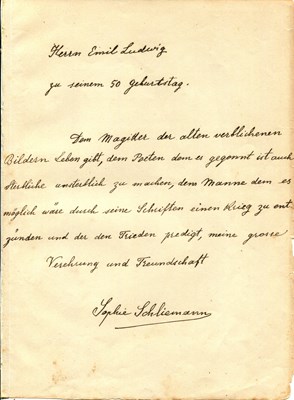 Herrn Emil Ludwig
zu seinem 50 Geburtstag.
Dem Magiker der alten verblichenen
Bildern Leben gibt, dem Poeten dem es gegönnt ist auch
Sterbliche unsterblich zu machen, dem Manne dem es
möglich wäre durch seine Schriften einen Krieg zu ent
zünden und der den Frieden predigt, meine grosse
Verehrung und Freundschaft
Sophie Schliemann